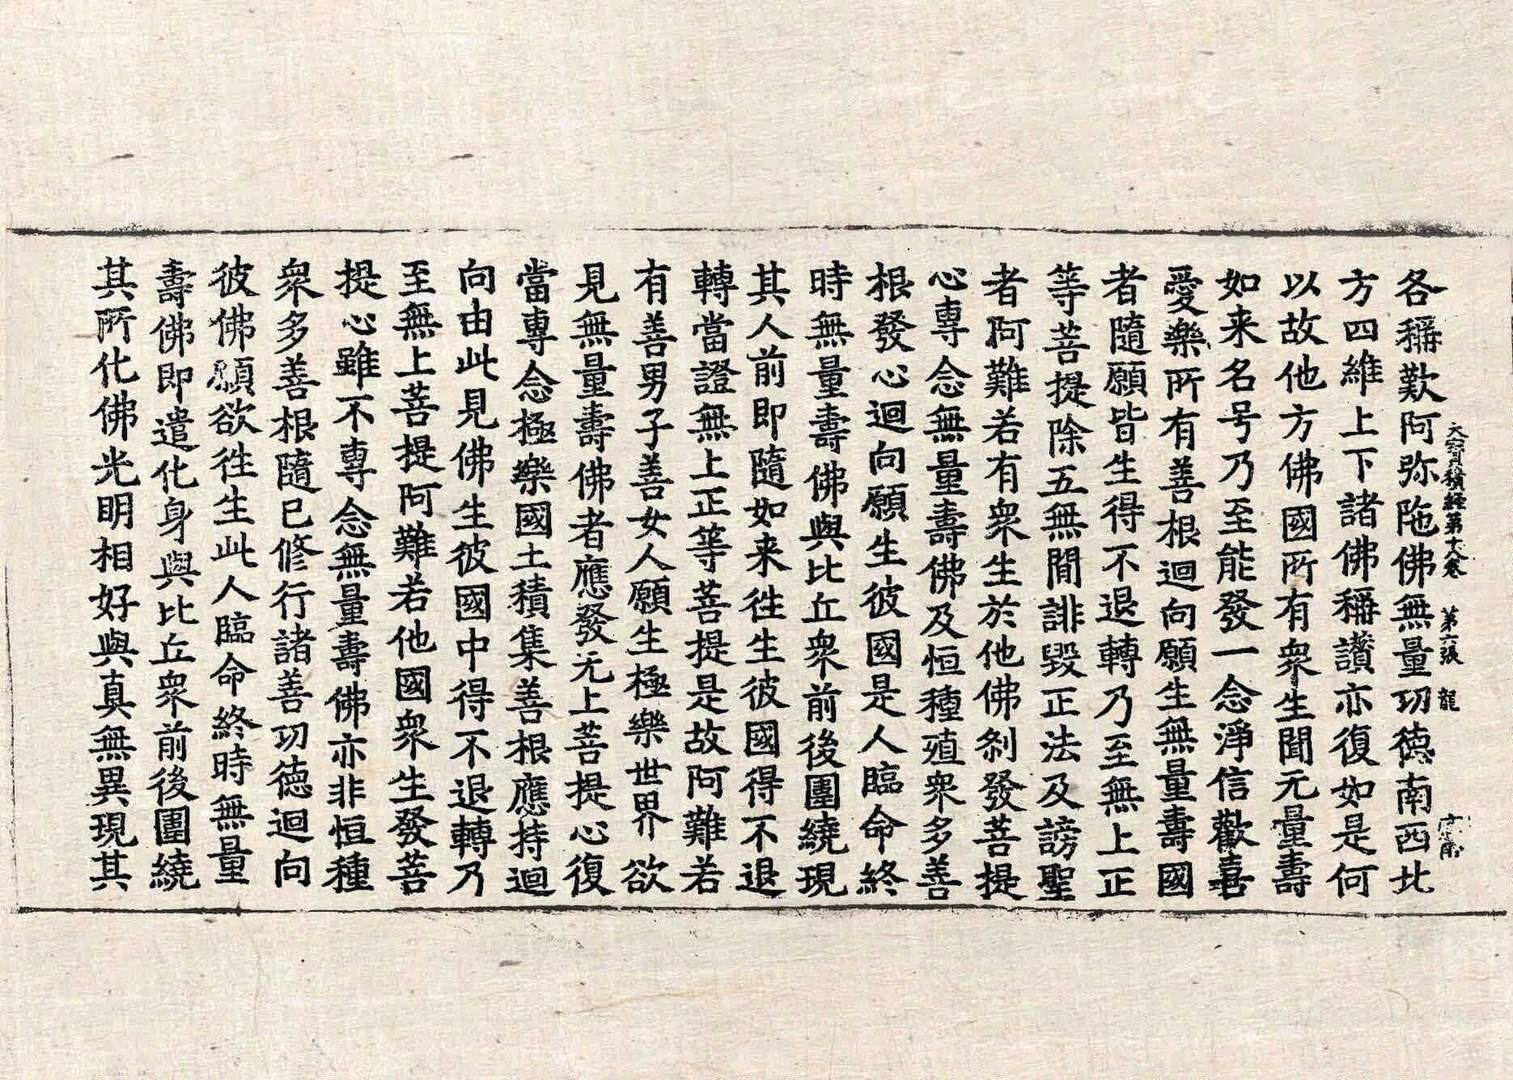 大寳積經第十八卷 第六張 龍
各稱歎阿弥陁佛無量功德南西北
方四維上下諸佛稱讃亦復如是何
以故他方佛國所有衆生聞无量壽
如来名号乃至能發一念淨信歡喜
愛樂所有善根迴向願生無量壽國
者隨願皆生得不退轉乃至無上正
等菩提除五無間誹毀正法及謗聖
者阿難若有衆生於他佛刹發菩提
心專念無量壽佛及恒種殖衆多善
根發心迴向願生彼國是人臨命終
時無量壽佛與比丘衆前後圍繞現
其人前即隨如来徃生彼國得不退
轉當證無上正等菩提是故阿難若
有善男子善女人願生極樂世界欲
見無量壽佛者應發无上菩提心復
當專念極樂國土積集善根應持迴
向由此見佛生彼國中得不退轉乃
至無上菩提阿難若他國衆生發菩
提心雖不專念無量壽佛亦非恒種
衆多善根隨已修行諸善功德迴向
彼佛願欲徃生此人臨命終時無量
壽佛即遣化身與比丘衆前後圍繞
其所化佛光明相好與真無異現其